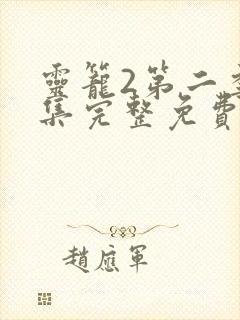 靈籠2第二季
集完整免費
趙應軍